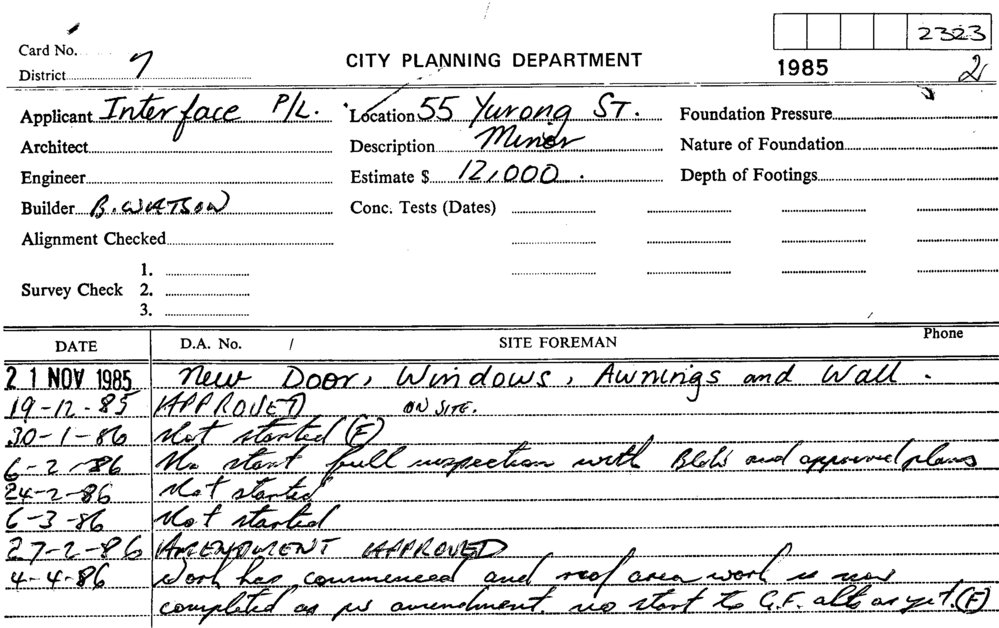 2323
Card No.
District 7
CITY PLANNING DEPARTMENT
1985
2
Applicant Interface P/L.
Location 55 Yurong ST.
Foundation Pressure
Architect
Description Minor
Nature of Foundation
Engineer
Estimate $ 12,000.
Depth of Footings
Builder B. WATSON
Conc. Tests (Dates)
Alignment Checked
1.
Survey Check 2.
3.
DATE D.A. No. / SITE FOREMAN Phone
21 NOV 1985 New Door, Windows, Awnings and Wall.
19-12-85 APPROVED ON SITE.
30-1-86 Not started (F)
6-2-86 No start full inspection with and approved plans
24-2-86 Not started
6-3-86 Not started
27-2-86 AMENDMENT APPROVED
4-4-86 Work has commenced and roof area work is now
completed as per amendment, no start to G.F. alts as yet. (F)